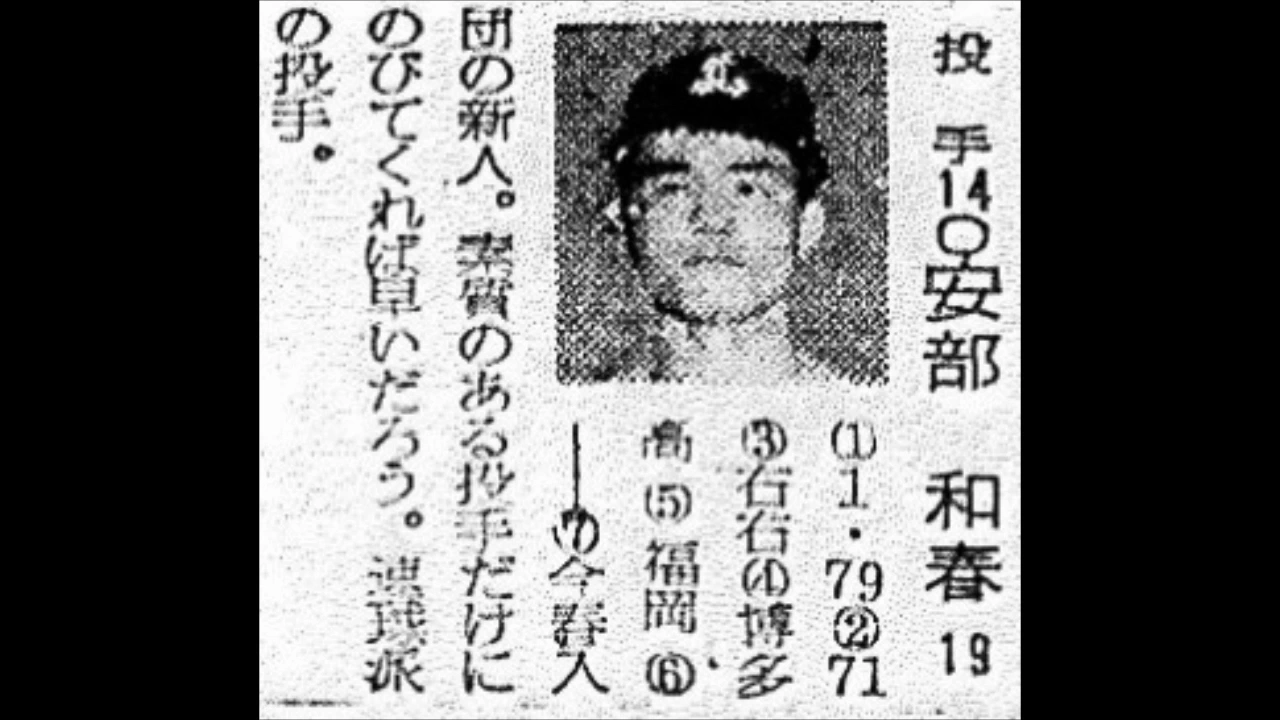 投手14○安部 和春 19
(1)1・79②71
(3)右右(4)博多
高(5)福岡(6)
―(7)今春入
団の新人。素質のある投手だけに
のびてくれば早いだろう。速球派
の投手。